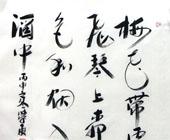 梅花带雪
飛琴上柳
色和烟入
酒中
丙申